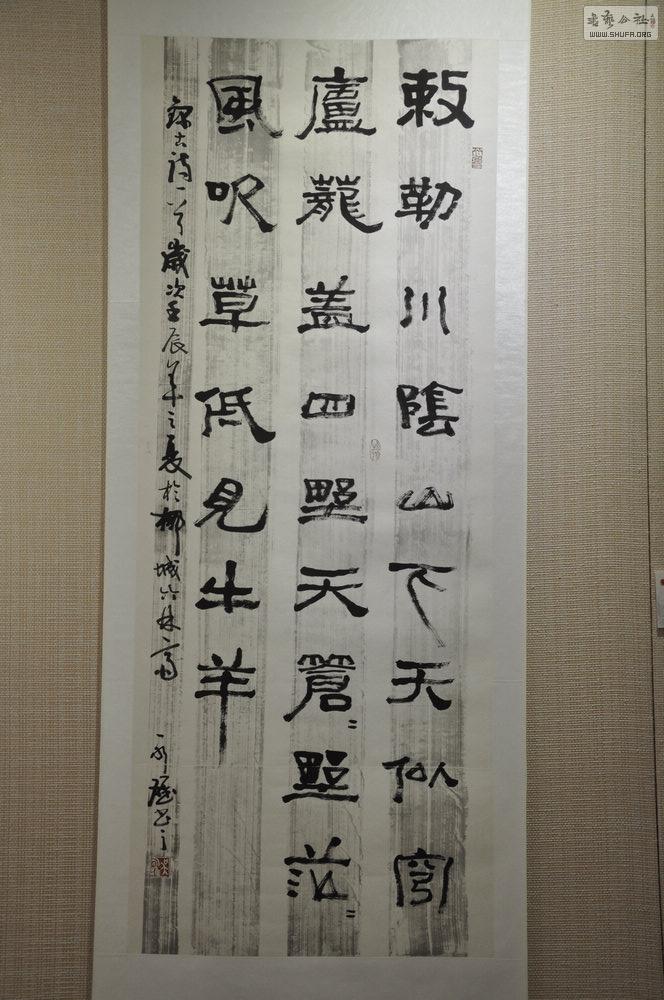 敕勒川陰山下天似穹
廬蘢盖四野天蒼〻野茫〻
風吹草低見牛羊
錄古詩一首歲次壬辰年之夏於柳城八林齋
書藝公社
WWW.SHUFA.ORG